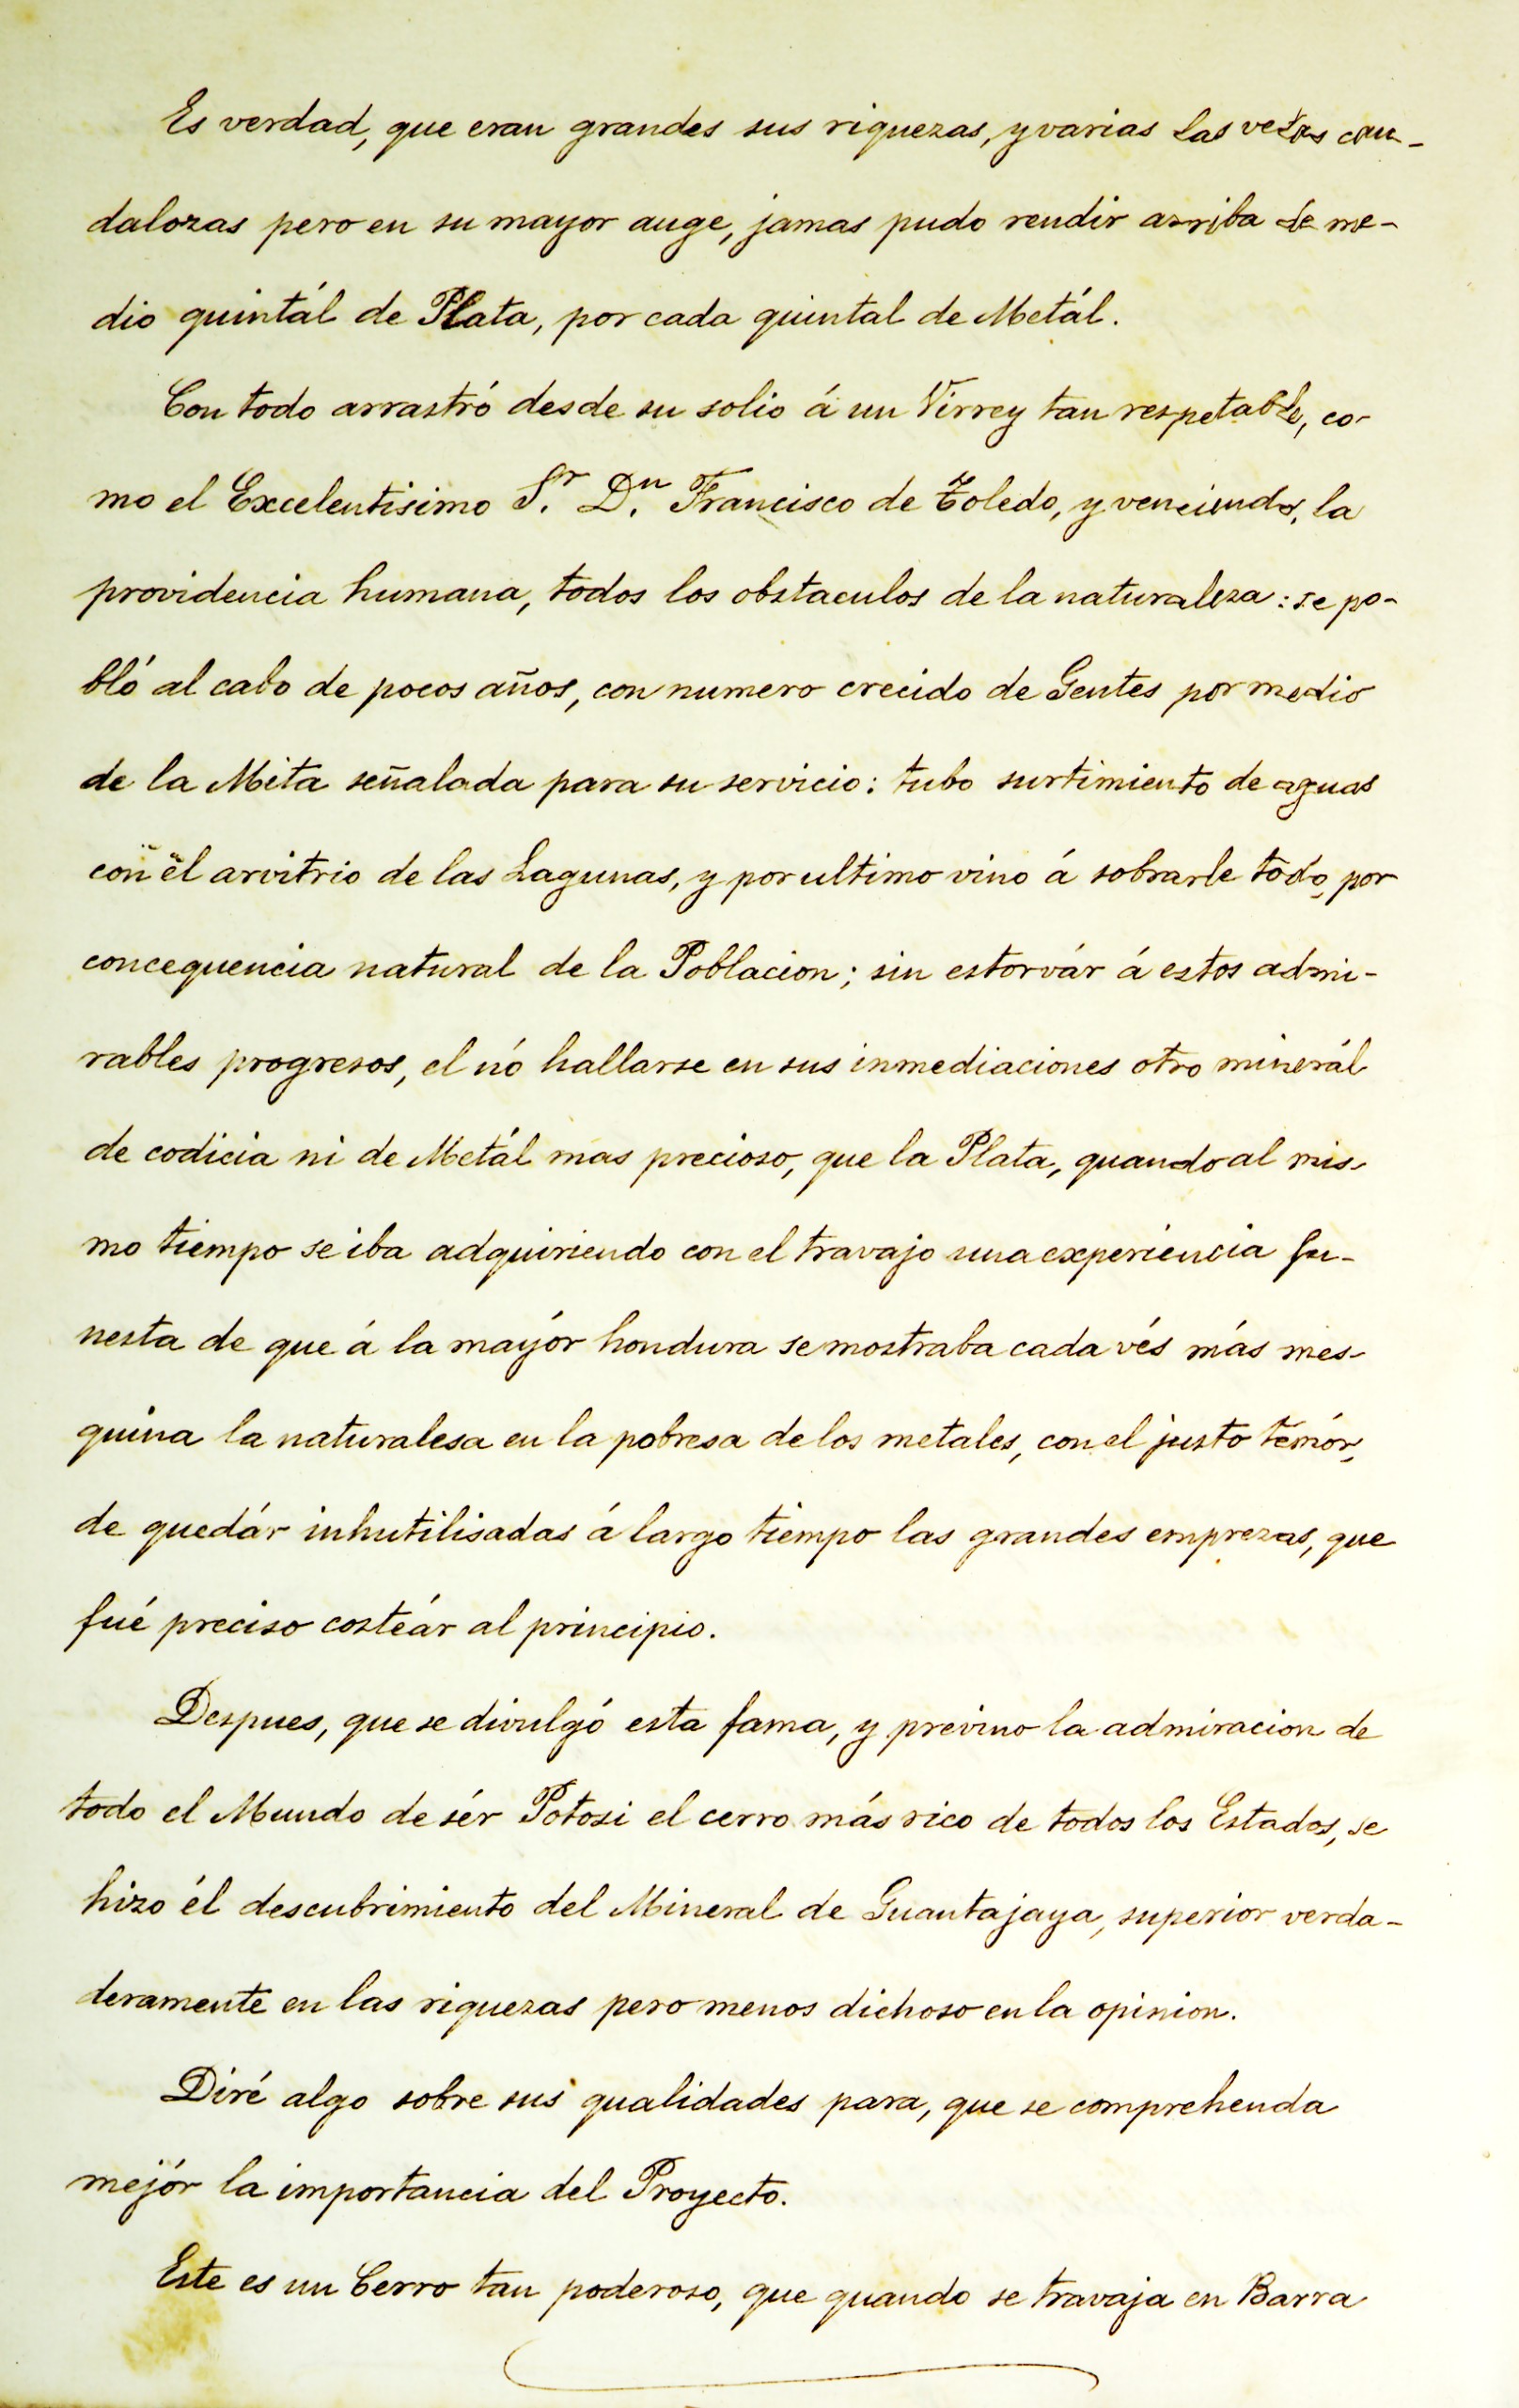 Es verdad, que eran grandes sus riquezas, y varias las vetas cau-
dalozas pero en su mayor auge, jamas pudo rendir arriba de me-
dio quintál de Plata, por cada quintal de Metál.
Con todo arrastró desde su solio á un Virrey tan respetable, co-
mo el Excelentisimo S.r D.n Francisco de Toledo, y venciendo, la
providencia humana, todos los obstaculos de la naturaleza: se po-
bló al cabo de pocos años, con numero crecido de Gentes por medio
de la Mita señalada para su servicio: tubo surtimiento de aguas
con el arvitrio de las Lagunas, y por ultimo vino á sobrarle todo, por
concequencia natural de la Poblacion; sin estorvár á estos admi-
rables progresos, el nó hallarse en sus inmediaciones otro minerál
de codicia ni de Metál mas precioso, que la Plata, quando al mis-
mo tiempo se iba adquiriendo con el travajo una experiencia fu-
nesta de que á la mayór hondura se mostraba cada vés más mes-
quina la naturalesa en la pobresa de los metales, con el justo temór,
de quedár inhutilisadas á largo tiempo las grandes emprezas, que
fué preciso costeár al principio.
Despues, que se divulgó esta fama, y previno la admiracion de
todo el Mundo de sér Potosi el cerro más rico de todos los Estados, se
hizo él descubrimiento del Mineral de Guantajaya, superior verda-
deramente en las riquezas pero menos dichoso en la opinion.
Diré algo sobre sus qualidades para, que se comprehenda
mejór la importancia del Proyecto.
Este es un Cerro tan poderoso, que quando se travaja en Barra